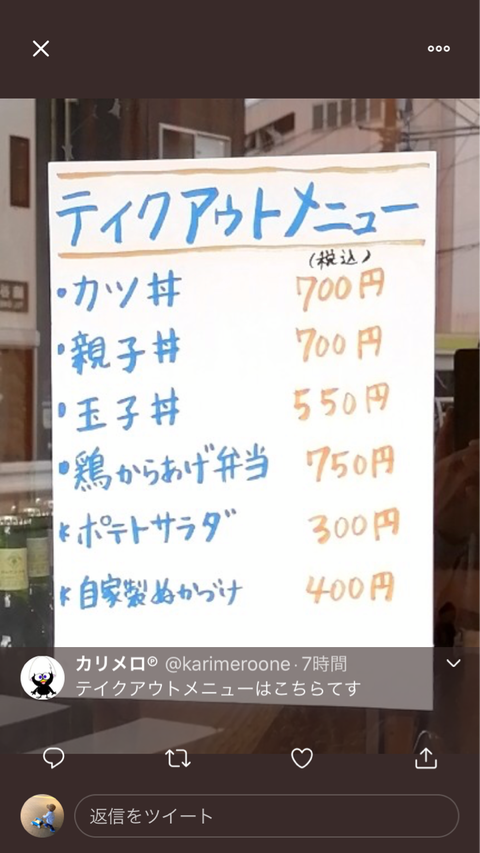 テイクアウトメニュー
(税込)
・カツ丼 700円
・親子丼 700円
・玉子丼 550円
・鶏からあげ弁当 750円
ポテトサラダ 300円
自家製ぬかづけ 400円
カリメロ® @karimeroone・7時間
テイクアウトメニューはこちらてす
返信をツイート